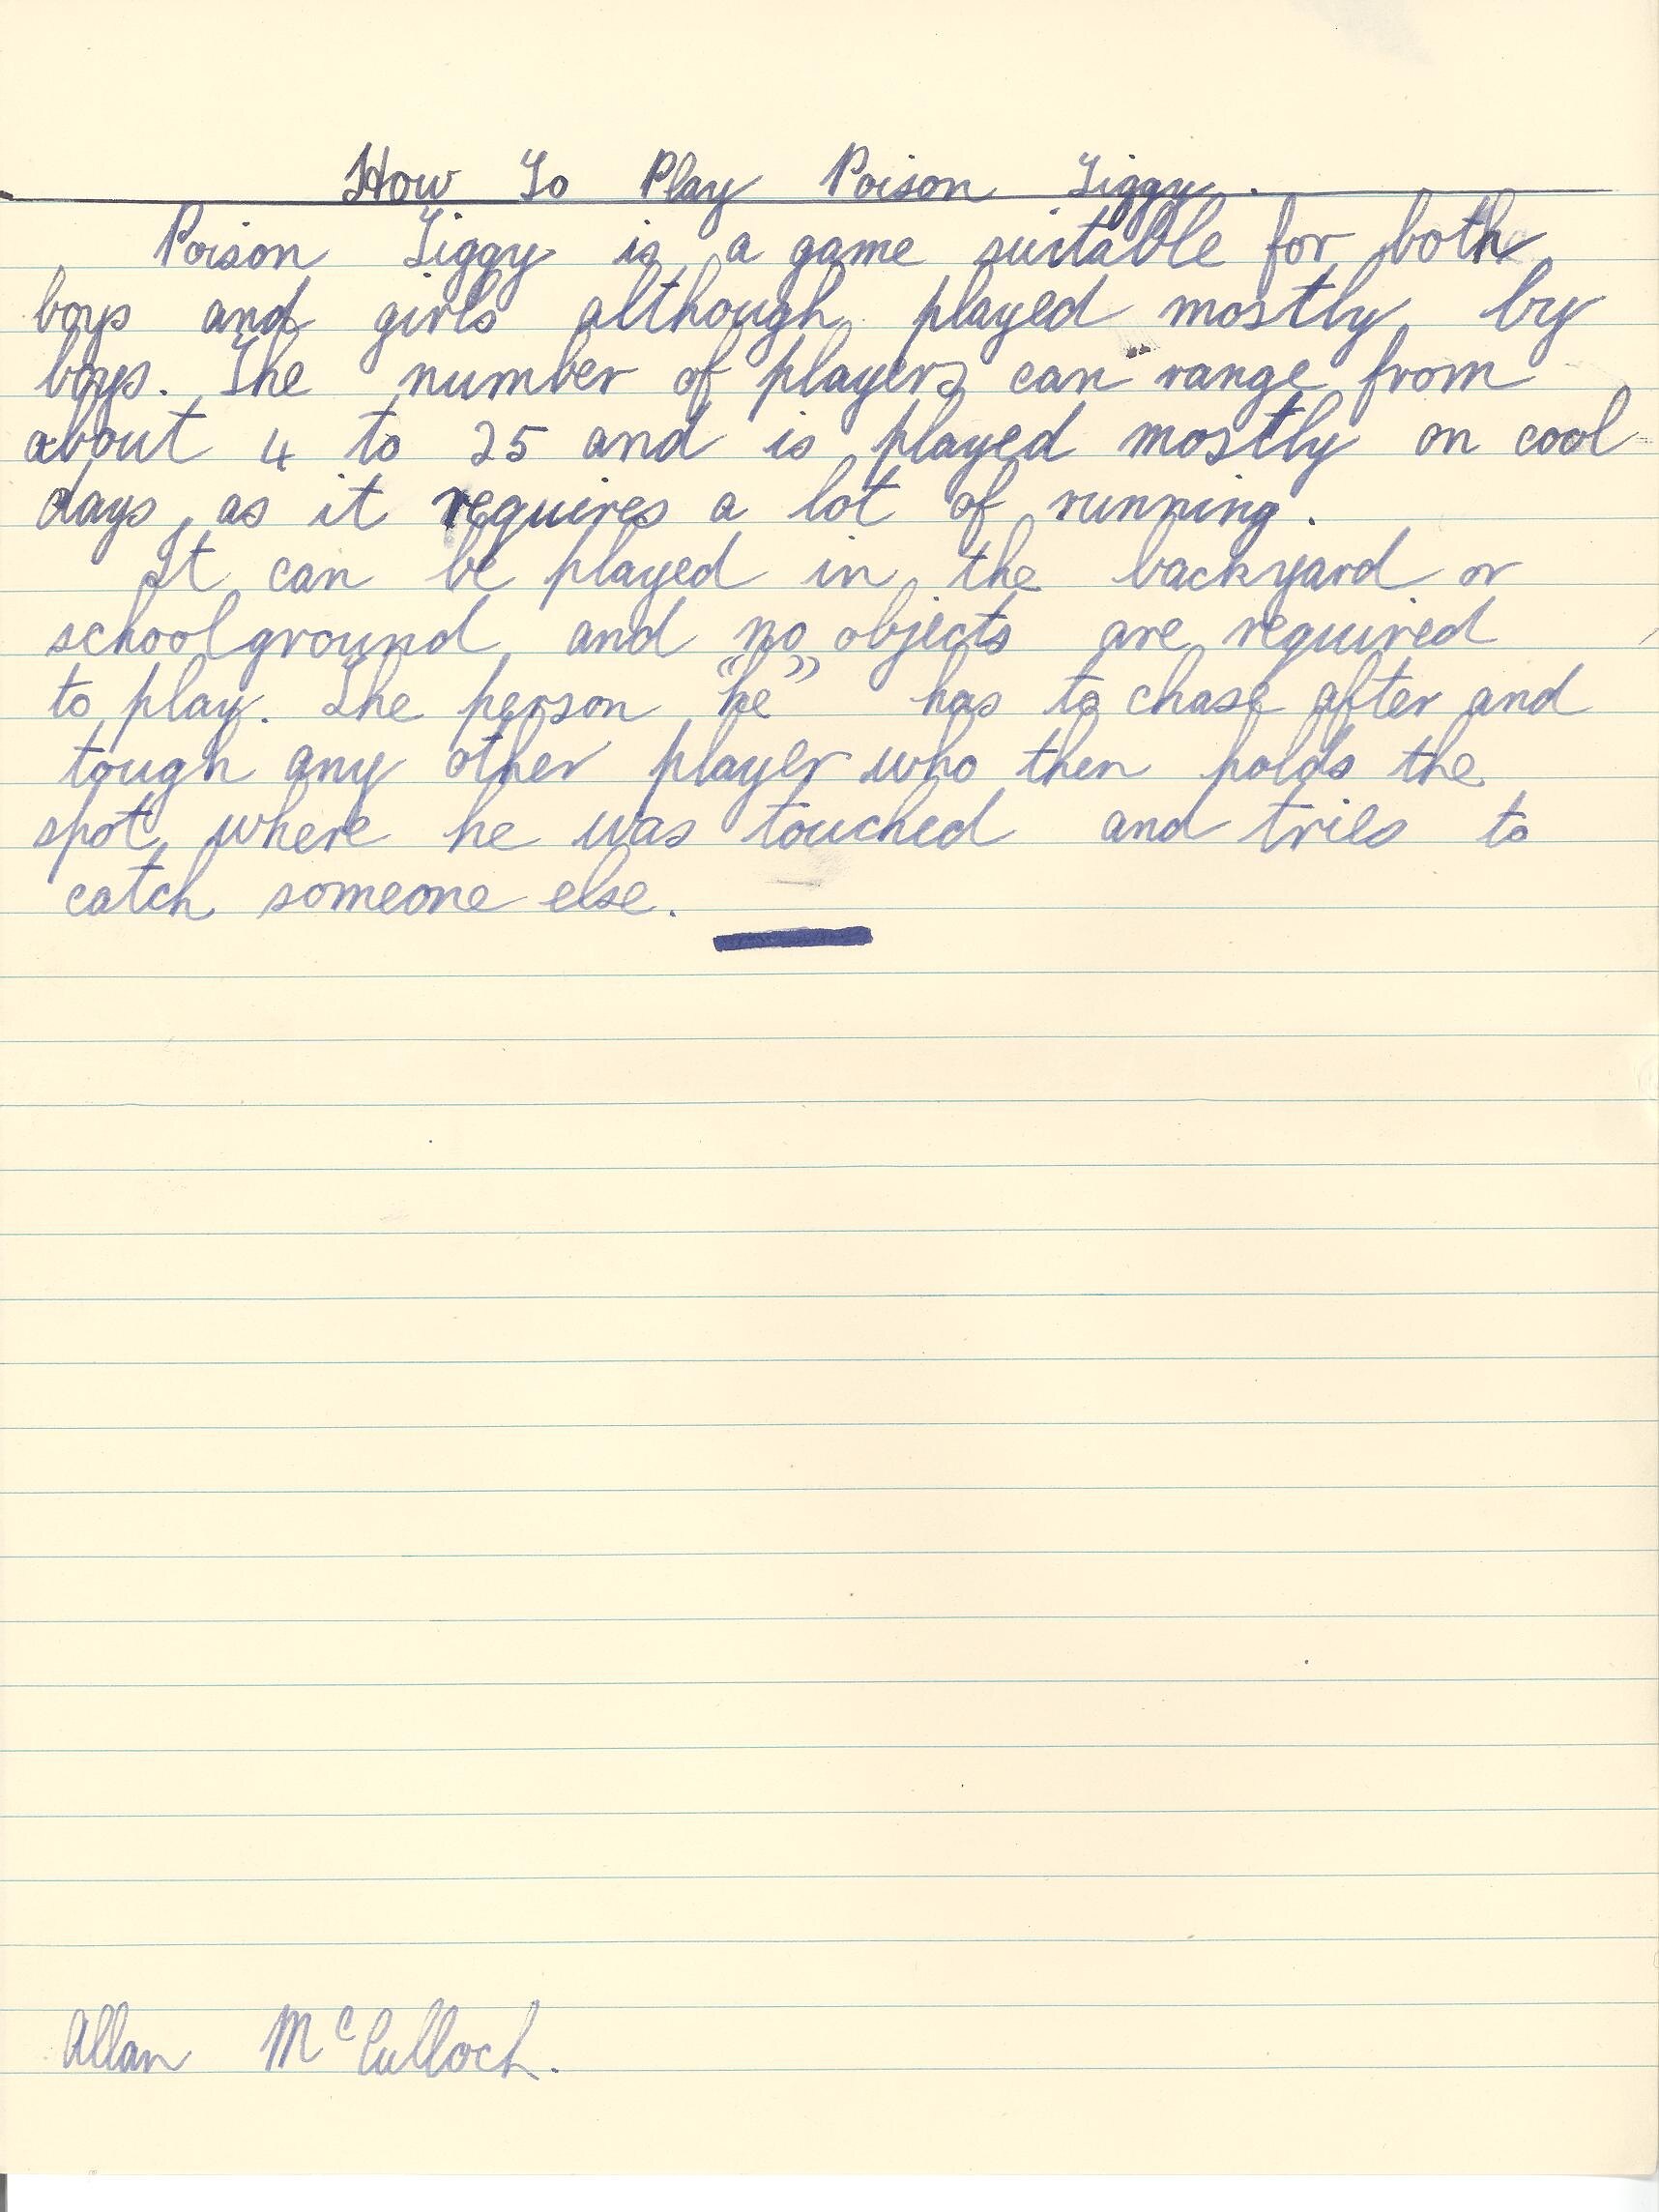 How To Play Poison Tiggy.
Poison Tiggy is a game suitable for both
boys and girls although played mostly by
boys. The number of players can range from
about 4 to 25 and is played mostly on cool
days, as it requires a lot of running.
It can be played in the backyard or
schoolground and no objects are required
to play. The person "he" has to chase after and
tough any other player who then holds the
spot where he was touched and tries to
catch someone else.
Allan McCulloch.